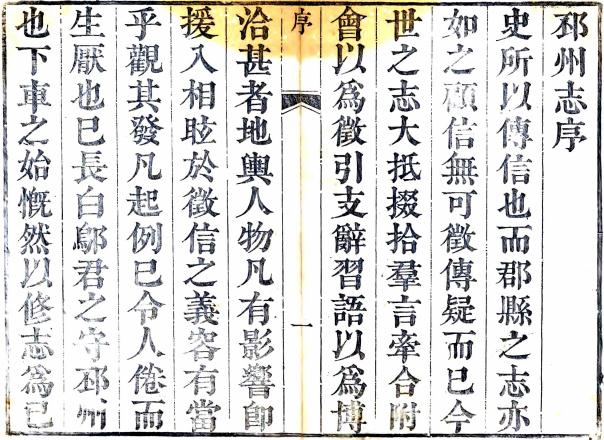 邳州志序
史所以傳信也而郡縣之志亦
如之顧信無可徵傳疑而已今
世之志大抵掇拾羣言牽合附
會以爲徵引支辭習語以爲博
序
一
洽甚者地輿人物凡有影響卽
援入相眩於徵信之義容有當
乎觀其發凡起例已令人倦而
生厭也已長白鄔君之守邳州
也下車之始慨然以修志爲己